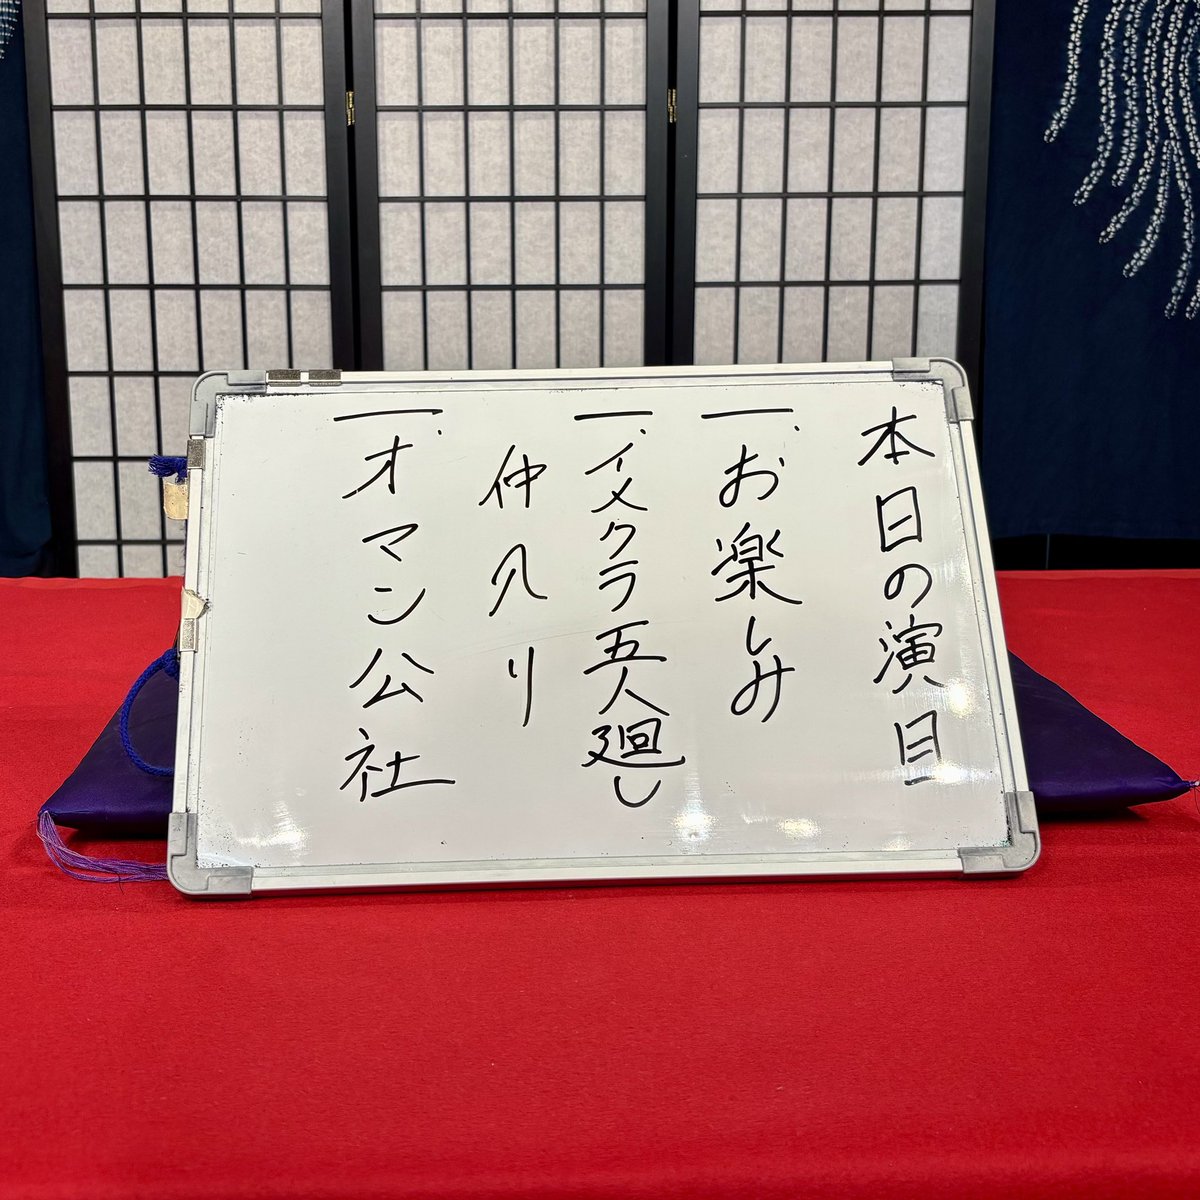 本日の演目
一、お楽しみ
一、イメクラ五人廻し
仲入り
一、オマン公社